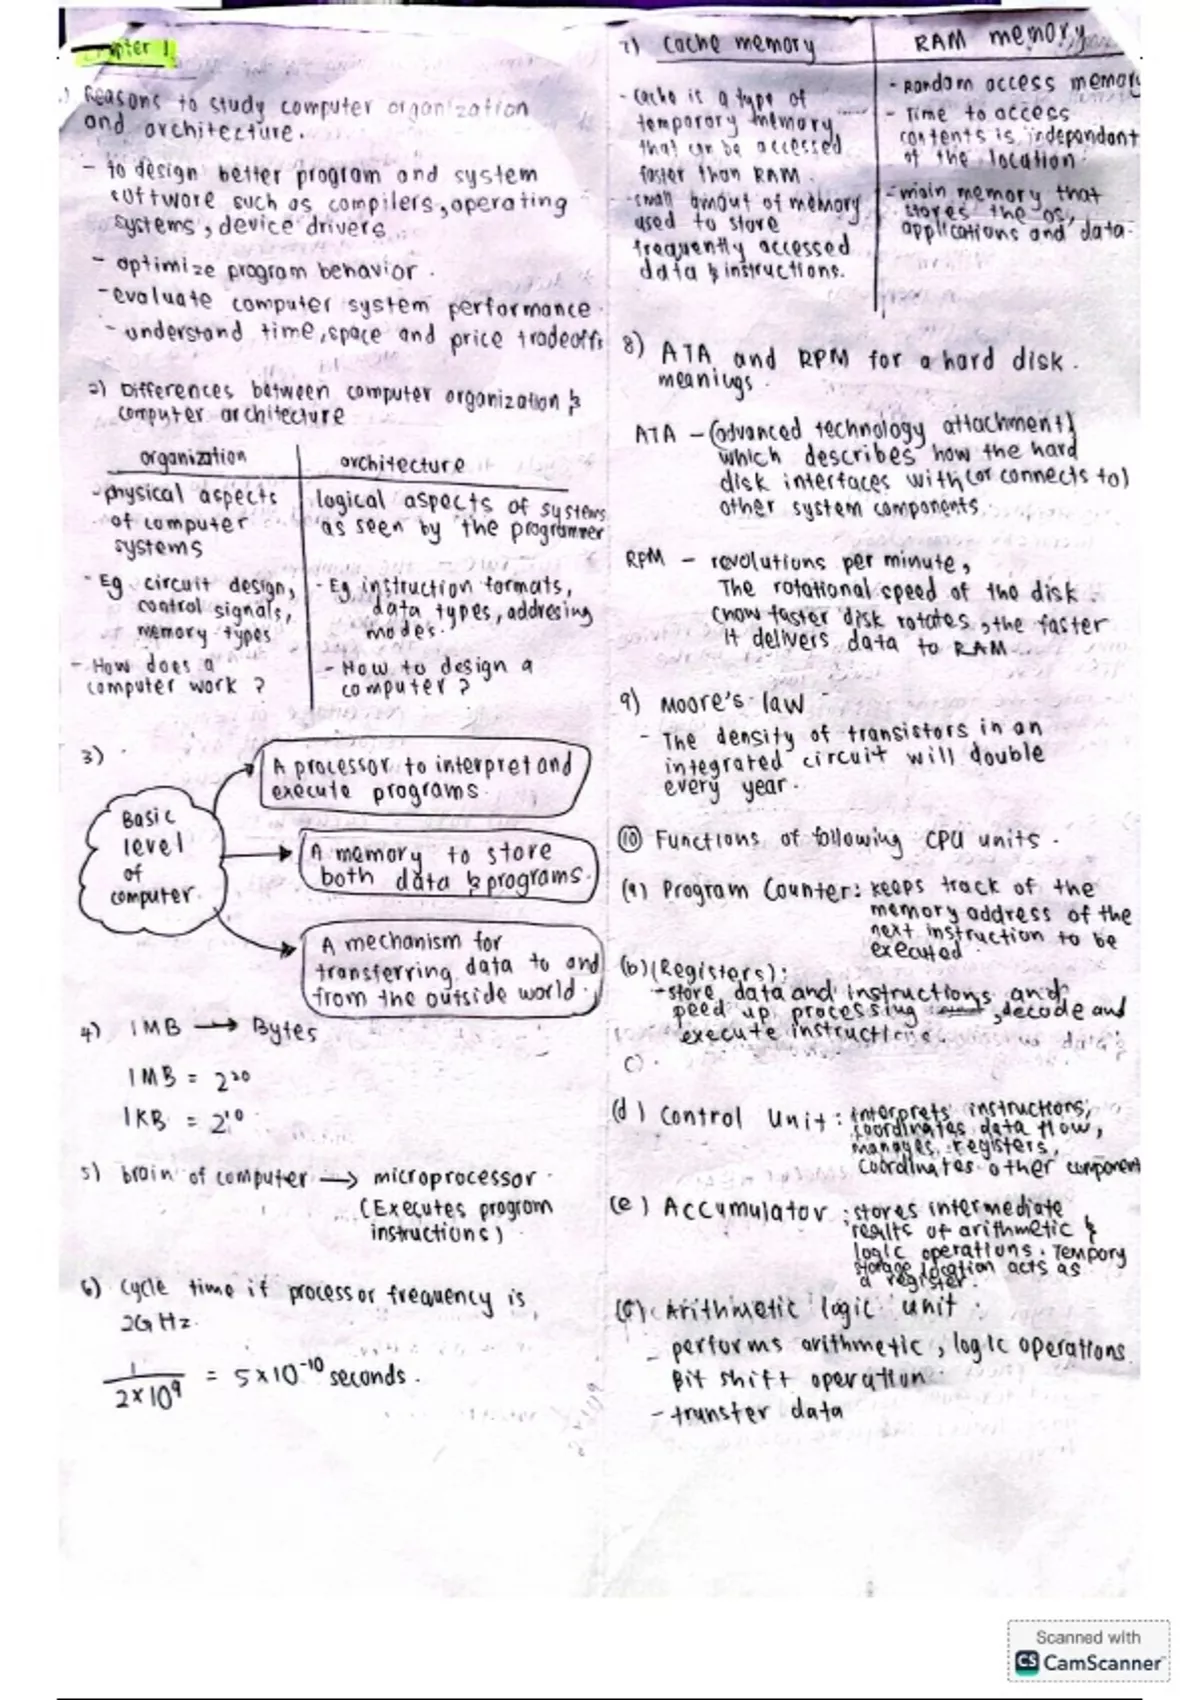 Chapter 1
1) Reasons to study computer organization
and architecture.
- to design better program and system
software such as compilers, operating
systems, device drivers.
- optimize program behavior.
- evaluate computer system performance.
- understand time, space and price tradeoffs
2) Differences between computer organization &
computer architecture
organization architecture
- physical aspects
of computer
systems
- Eg circuit design,
control signals,
memory types
- How does a
computer work ?
logical aspects of systems
as seen by the programmer
- Eg instruction formats,
data types, addresing
modes.
- How to design a
computer ?
3)
Basic
level
of
computer.
A processor to interpret and
execute programs.
A memory to store
both data & programs.
A mechanism for
transferring data to and
from the outside world.
4) 1MB → Bytes
1MB = 2²⁰
1KB = 2¹⁰
5) brain of computer → microprocessor.
(Executes program
instructions)
6) Cycle time if processor frequency is
2GHz.
1
2×10⁹ = 5×10⁻¹⁰ seconds.
7) Cache memory RAM memory
- Cache is a type of
temporary memory
that can be accessed
faster than RAM.
- small amout of memory
used to store
frequently accessed
data & instructions.
- Random access memory
- Time to access
contents is independant
of the location.
- main memory that
stores the os,
applications and data.
8) ATA and RPM for a hard disk.
meanings.
ATA - (advanced technology attachment)
which describes how the hard
disk interfaces with (or connects to)
other system components.
RPM - revolutions per minute,
The rotational speed of the disk.
(how faster disk rotates, the faster
it delivers data to RAM.
9) Moore's law
- The density of transistors in an
integrated circuit will double
every year.
10 Functions of following CPU units.
(a) Program Counter: keeps track of the
memory address of the
next instruction to be
executed.
(b) (Registers):
- store data and instructions and
peed up processing, decode and
execute instructions.
C).
(d) Control Unit: interprets instructions,
coordinates data flow,
manages registers,
Coordinates other component
(e) Accumulator: stores intermediate
results of arithmetic &
logic operations. Tempory
storage location acts as
a register.
Arithmetic logic unit
- performs arithmetic, logic operations
Bit shift operation.
- transfer data
Scanned with
CS CamScanner